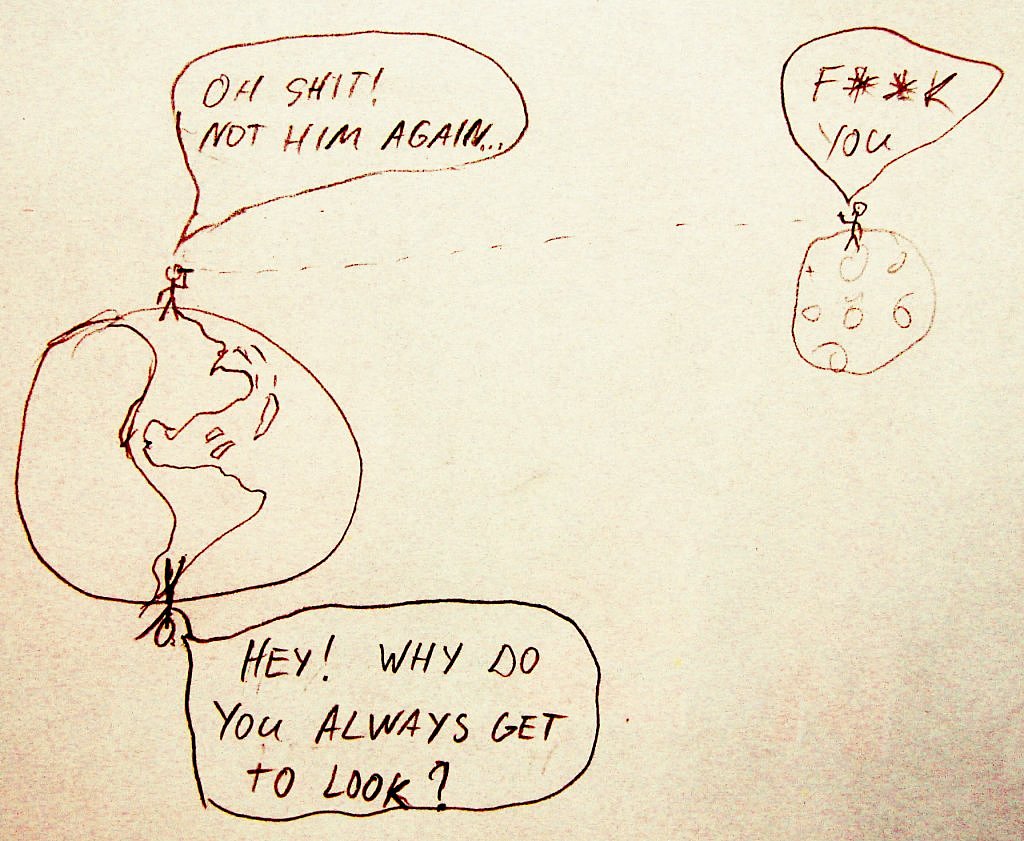 OH SHIT!
NOT HIM AGAIN...
F**K
YOU
HEY! WHY DO
YOU ALWAYS GET
TO LOOK?